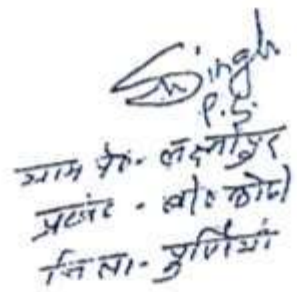 Singh
P.S.
ग्राम पो०- लक्ष्मीपुर
प्रखंड -
जिला- पुर्णियां